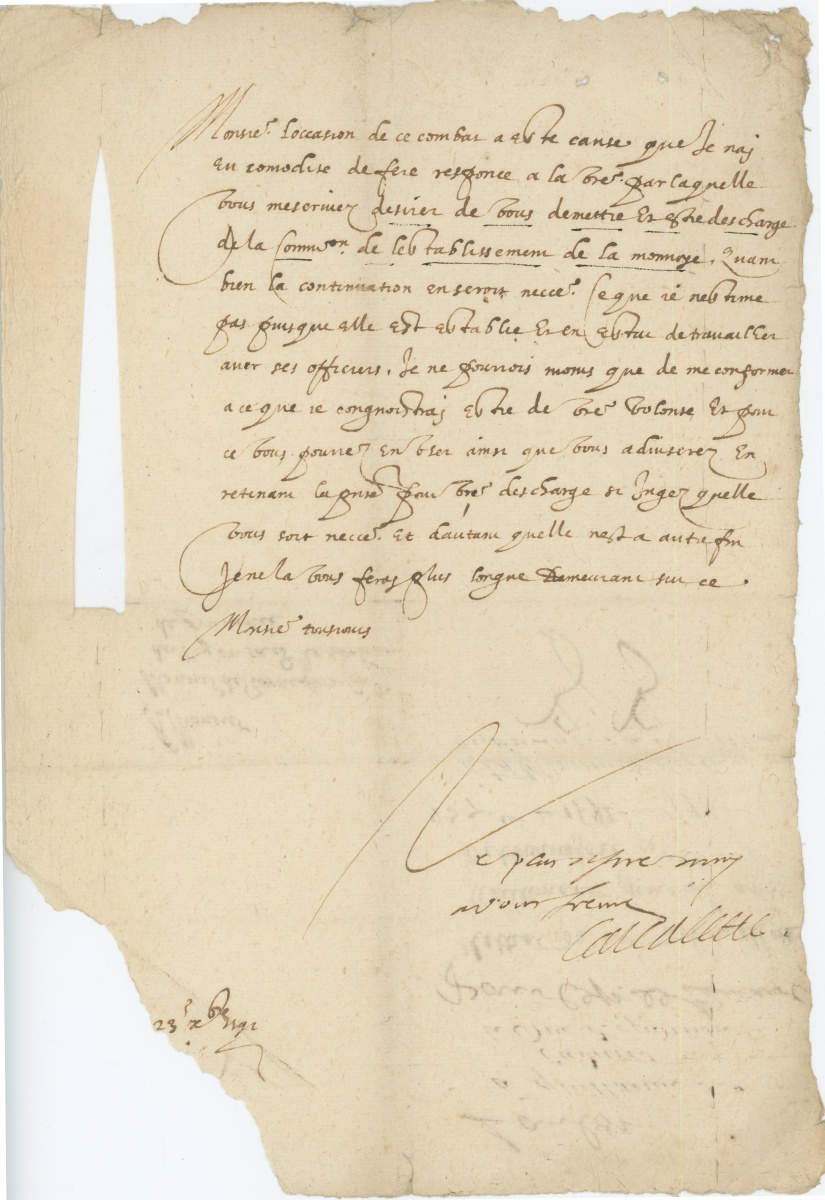 Monsie.r l'occasion de ce combat a este cause que Je naj
eu comodite de fere responce a la vre. par laquelle
vous mescrivez desirer de vous demettre et estre descharge
de la Comm.on de lestablissement de la monnoye. Quant
bien la continuation en seroit necce.r Ce que ie nestime
pas puisque elle est establie et en estat de travailher
avec ses officiers, Je ne pourrois moins que de me conformer
a ce que ie congnoistraj estre de vre. volonte Et pour
ce vous pourrez en user ainsi que vous adviserez En
retenant la pnte pour vre. descharge si Jugez quelle
vous soit necce.r Et dautant quelle nest a autre fin
Je ne la vous feray plus longue Demeurant sur ce
Monsie.r tousiours
a vous servir
23.e xbre 1591